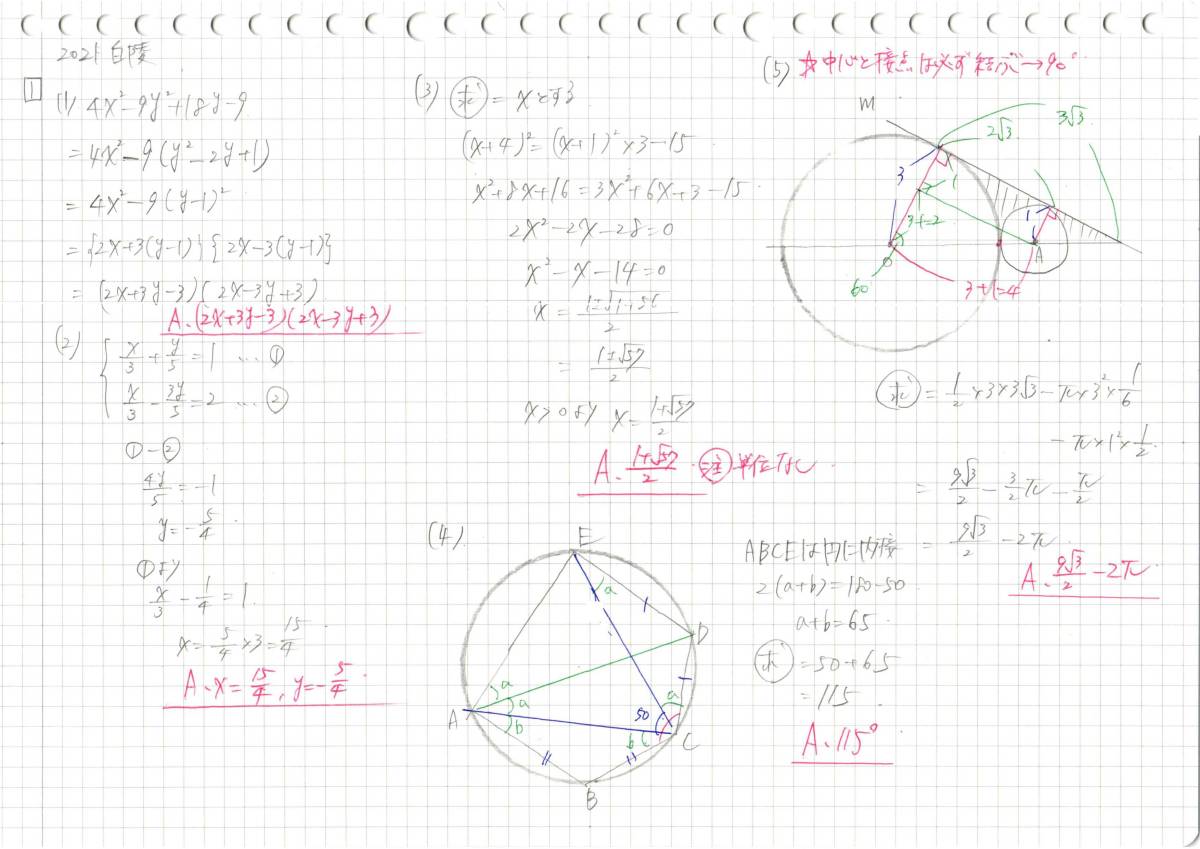 2021 白陵
1
(1) 4x²-9y²+18y-9
=4x²-9(y²-2y+1)
=4x²-9(y-1)²
={2x+3(y-1)}{2x-3(y-1)}
=(2x+3y-3)(2x-3y+3)
A.(2x+3y-3)(2x-3y+3)
(2)
x/3+y/5=1 … ①
x/3-3y/5=2 … ②
①-②
4y/5=-1
y=-5/4
①より
x/3-1/4=1
x=5/4×3=15/4
A.x=15/4, y=-5/4
(3) 求=xとする
(x+4)²=(x+1)²×3-15
x²+8x+16=3x²+6x+3-15
2x²-2x-28=0
x²-x-14=0
x=1±√1+56/2
=1±√57/2
x>0より x=1+√57/2
A.1+√57/2 注単位なし
(4)
E
a
D
a
a
A
b
50
a
b
C
B
ABCEは円に内接
2(a+b)=180-50
a+b=65
求=50+65
=115
A.115°
(5) ☆中心と接点は必ず結ぶ→90°
m
2√3
3√3
3
1
1
3-1=2
1
O
A
60
3+1=4
求=1/2×3×3√3-π×3²×1/6
-π×1²×1/2
=9√3/2-3/2π-π/2
=9√3/2-2π
A.9√3/2-2π